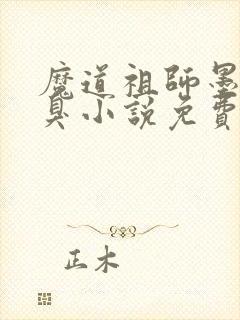 魔道祖師墨
臭小說免費
正木